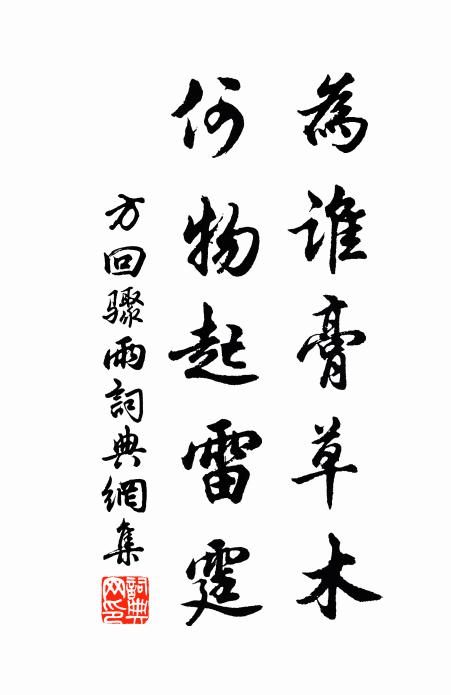 為誰膏草木
何物起雷霆
方回驟雨詞典網集
詞典網印